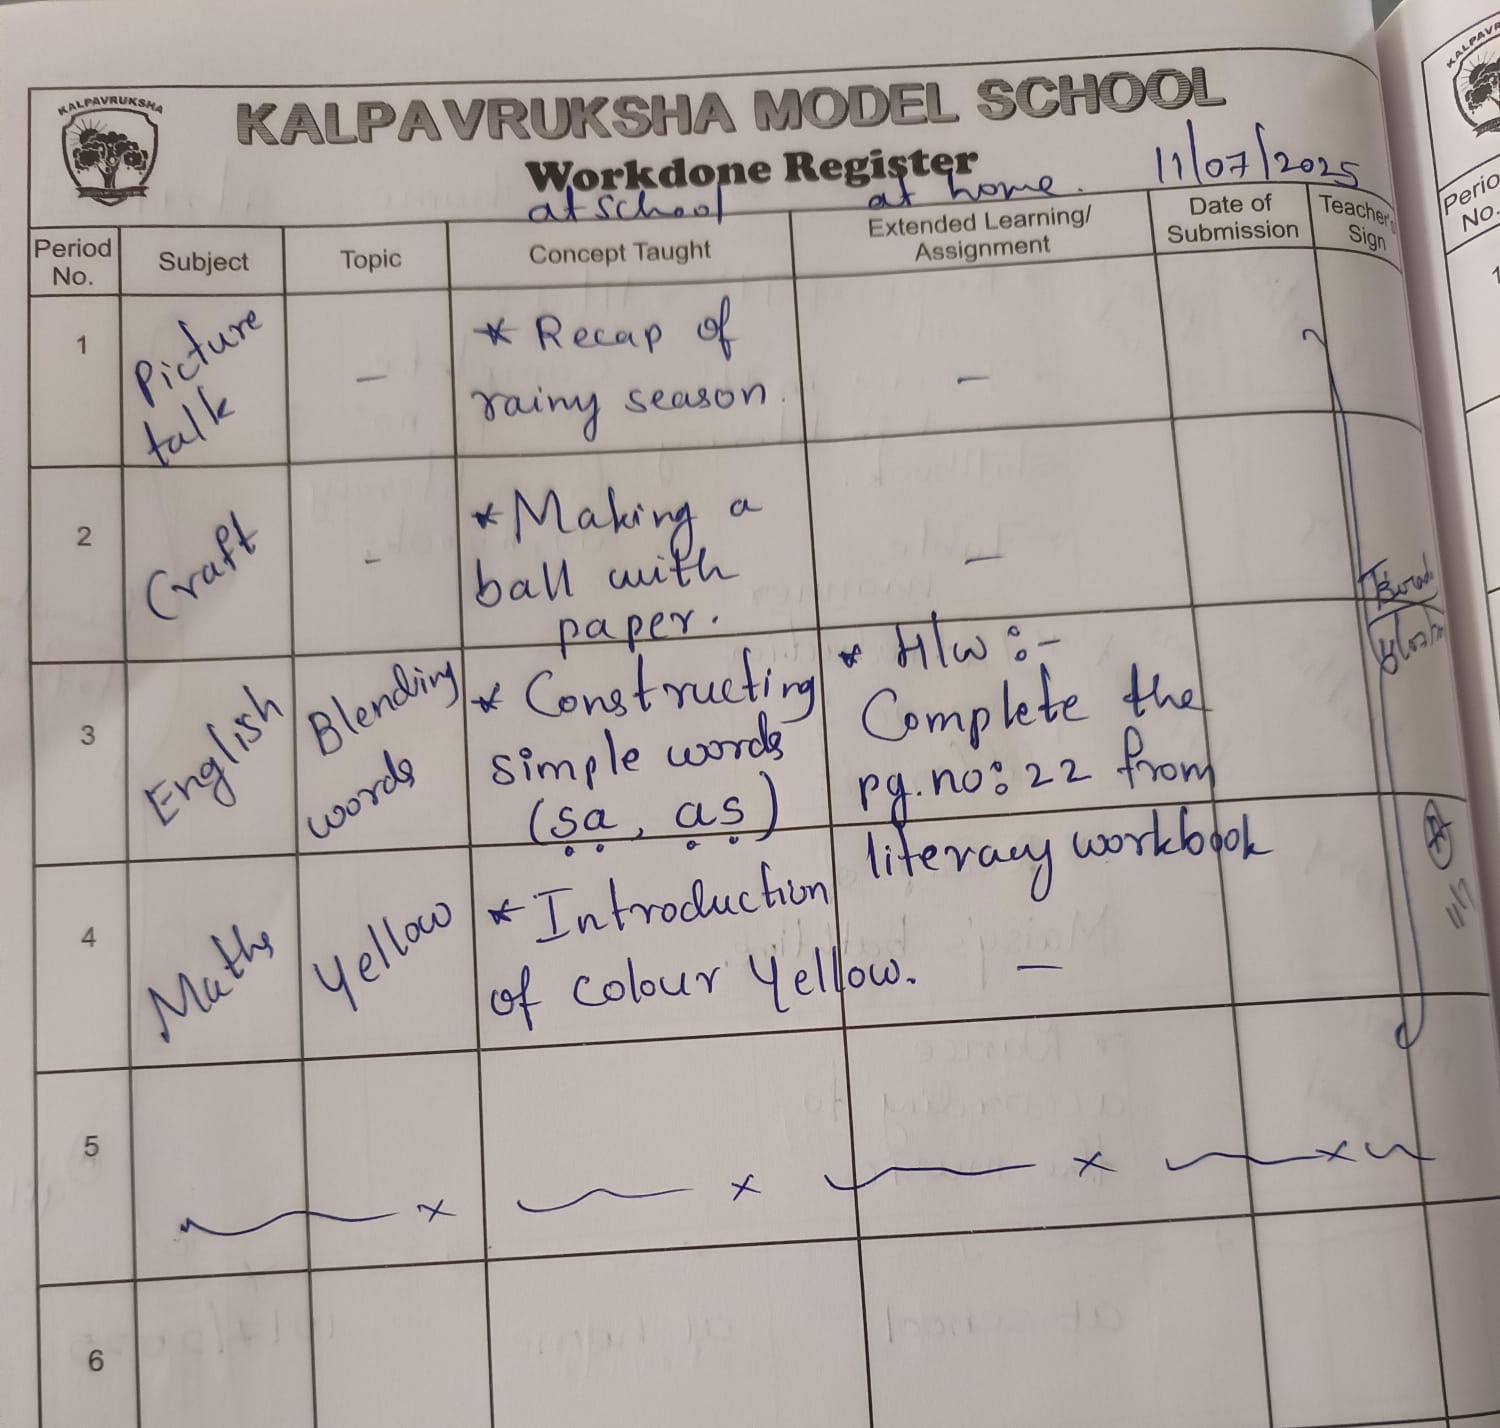 KALPAVRUKSHA
KALPAVRUKSHA MODEL SCHOOL
Workdone Register
11/07/2025
at school
at home.
Period No.
Subject
Topic
Concept Taught
Extended Learning/
Assignment
Date of
Submission
Teacher's
Sign
1
Picture
talk
–
* Recap of
rainy season.
–
2
Craft
-
* Making a
ball with
paper.
–
3
English
Blending
words
* Constructing
simple words
(sa, as)
* H/w :-
Complete the
pg.no: 22 from
literacy workbook
4
Maths
Yellow
* Introduction
of colour Yellow.
–
5
6
Perio
No.
1